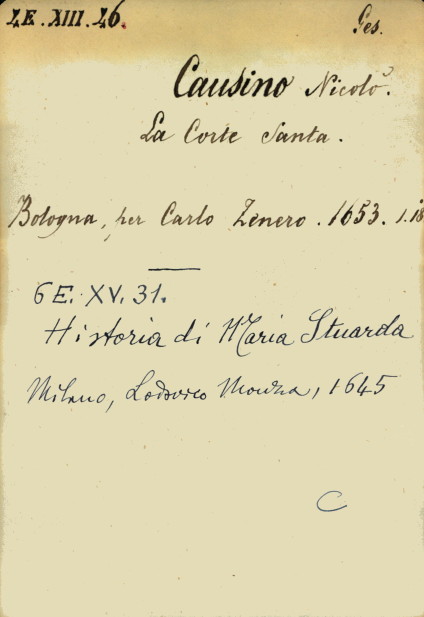 4E.XIII.46. Ges.
Causino Nicolò.
La Corte Santa.
Bologna, per Carlo Zenero. 1653. 1.
6E. XV. 31.
Historia di Maria Stuarda
Milano, Lodovico Monza, 1645
C